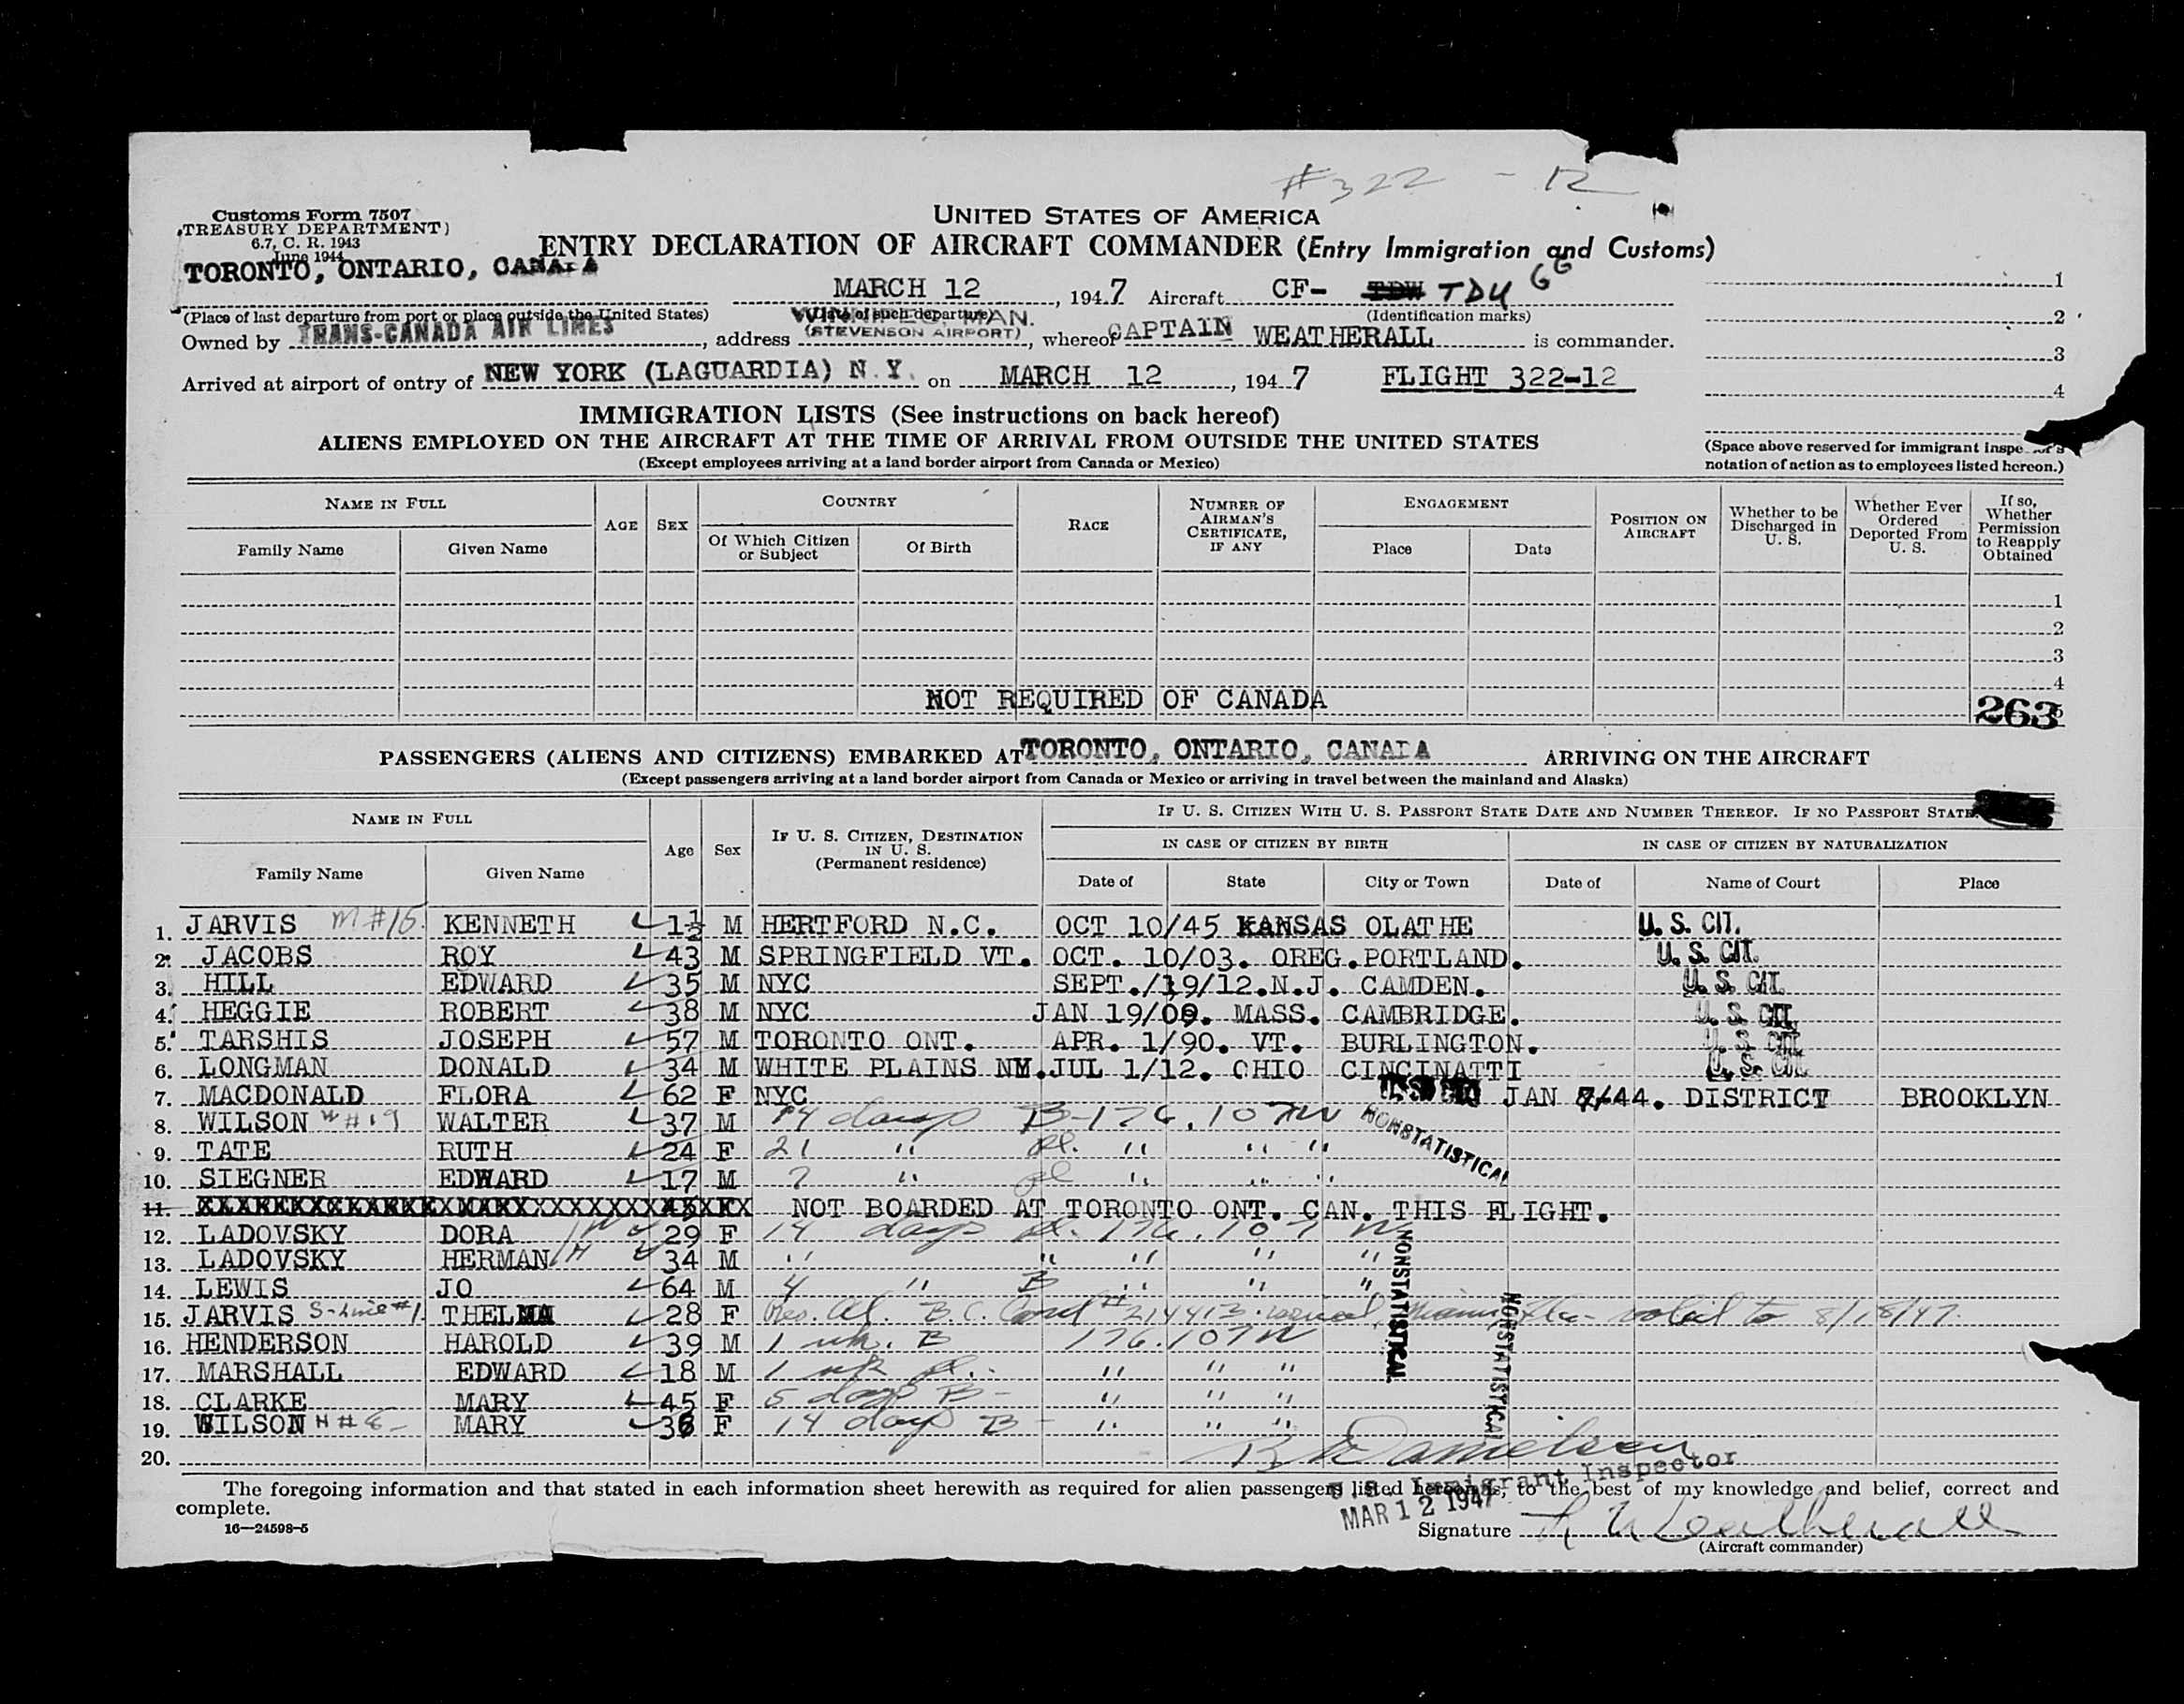 #322 - 12
Customs Form 7507
TREASURY DEPARTMENT)
6.7, C. R. 1943
June 1944
UNITED STATES OF AMERICA
ENTRY DECLARATION OF AIRCRAFT COMMANDER (Entry Immigration and Customs)
TORONTO, ONTARIO, CANADA
MARCH 12, 1947 Aircraft CF- TDW TDU GG
(Place of last departure from port or place outside the United States) (Date of such departure) (Identification marks)
WINNIPEG, MAN.
Owned by TRANS-CANADA AIR LINES, address (STEVENSON AIRPORT), whereof CAPTAIN WEATHERALL is commander.
Arrived at airport of entry of NEW YORK (LAGUARDIA) N.Y. on MARCH 12, 1947 FLIGHT 322-12
1
2
3
4
IMMIGRATION LISTS (See instructions on back hereof)
ALIENS EMPLOYED ON THE AIRCRAFT AT THE TIME OF ARRIVAL FROM OUTSIDE THE UNITED STATES
(Except employees arriving at a land border airport from Canada or Mexico)
(Space above reserved for immigrant inspector's
notation of action as to employees listed hereon.)
NAME IN FULL AGE SEX COUNTRY RACE NUMBER OF AIRMAN'S CERTIFICATE, IF ANY ENGAGEMENT POSITION ON AIRCRAFT Whether to be Discharged in U. S. Whether Ever Ordered Deported From U. S. If so, Whether Permission to Reapply Obtained
Family Name Given Name Of Which Citizen or Subject Of Birth Place Date
1
2
3
4
NOT REQUIRED OF CANADA
5
263
PASSENGERS (ALIENS AND CITIZENS) EMBARKED AT TORONTO, ONTARIO, CANADA ARRIVING ON THE AIRCRAFT
(Except passengers arriving at a land border airport from Canada or Mexico or arriving in travel between the mainland and Alaska)
NAME IN FULL Age Sex IF U. S. CITIZEN, DESTINATION IN U. S. (Permanent residence) IF U. S. CITIZEN WITH U. S. PASSPORT STATE DATE AND NUMBER THEREOF. IF NO PASSPORT STATE
IN CASE OF CITIZEN BY BIRTH IN CASE OF CITIZEN BY NATURALIZATION
Family Name Given Name Date of State City or Town Date of Name of Court Place
1. JARVIS M #15. KENNETH 1½ M HERTFORD N.C. OCT 10/45 KANSAS OLATHE U. S. CIT.
2. JACOBS ROY 43 M SPRINGFIELD VT. OCT. 10/03. OREG. PORTLAND. U. S. CIT.
3. HILL EDWARD 35 M NYC SEPT./19/12. N.J. CAMDEN. U. S. CIT.
4. HEGGIE ROBERT 38 M NYC JAN 19/09. MASS. CAMBRIDGE. U. S. CIT.
5. TARSHIS JOSEPH 57 M TORONTO ONT. APR. 1/90. VT. BURLINGTON. U. S. CIT.
6. LONGMAN DONALD 34 M WHITE PLAINS NY. JUL 1/12. OHIO CINCINATTI U. S. CIT.
7. MACDONALD FLORA 62 F NYC JAN 7/44. DISTRICT BROOKLYN
8. WILSON W #19 WALTER 37 M 14 days B-176.107W NONSTATISTICAL
9. TATE RUTH 24 F 21 " " " "
10. SIEGNER EDWARD 17 M 7 " " " "
11. NOT BOARDED AT TORONTO ONT. CAN. THIS FLIGHT.
12. LADOVSKY DORA W 29 F 14 days 176.107 W
13. LADOVSKY HERMAN H 34 M " " " " "
14. LEWIS JO 64 M 4 " B " " " NONSTATISTICAL
15. JARVIS S-Line #1. THELMA 28 F Res. Al. B.C. Card # 214413 issued Miami, Fla- valid to 8/18/47.
16. HENDERSON HAROLD 39 M 1 wk. B 176.107W
17. MARSHALL EDWARD 18 M 1 wk " " "
18. CLARKE MARY 45 F 5 days B- " " " NONSTATISTICAL
19. WILSON H #8- MARY 36 F 14 days B- " " "
20.
U. S. Immigrant Inspector
The foregoing information and that stated in each information sheet herewith as required for alien passengers listed hereon is, to the best of my knowledge and belief, correct and
complete.
MAR 12 1947
16—24598-5
Signature Weatherall
(Aircraft commander)